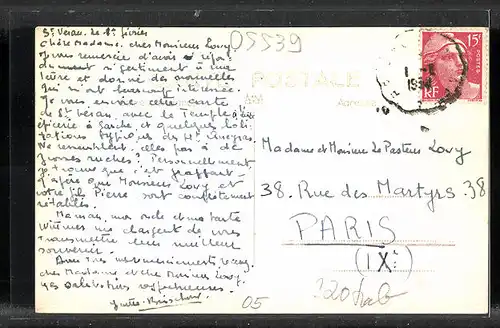 St Véran le 8 février
Chère Madame, cher Monsieur Lovy
Je vous remercie d'avoir répondu
si gentiment à ma
lettre et donné des nouvelles
qui m'ont beaucoup intéressée.
Je vous envoie cette carte
de St Véran, avec le Temple
épicerie à gauche et quelques habi
tations typiques du Ht Queyras
Ne ressemblent-elles pas à de
grosses ruches? Personnellement
je trouve que c'est
J'espère que Monsieur Lovy et
votre fils Pierre sont complètement
rétablis.
Maman, mon oncle et ma tante
me chargent de vous
transmettre leur meilleur
souvenir.
Avec mes remerciements, veuillez
cher Madame et cher Monsieur Lovy,
mes salutations respectueuses.
05539
POSTALE
15F
POSTES
RF
Madame et Monsieur Le Pasteur Lovy
38. Rue des Martyrs 38
PARIS
(IXè)
05